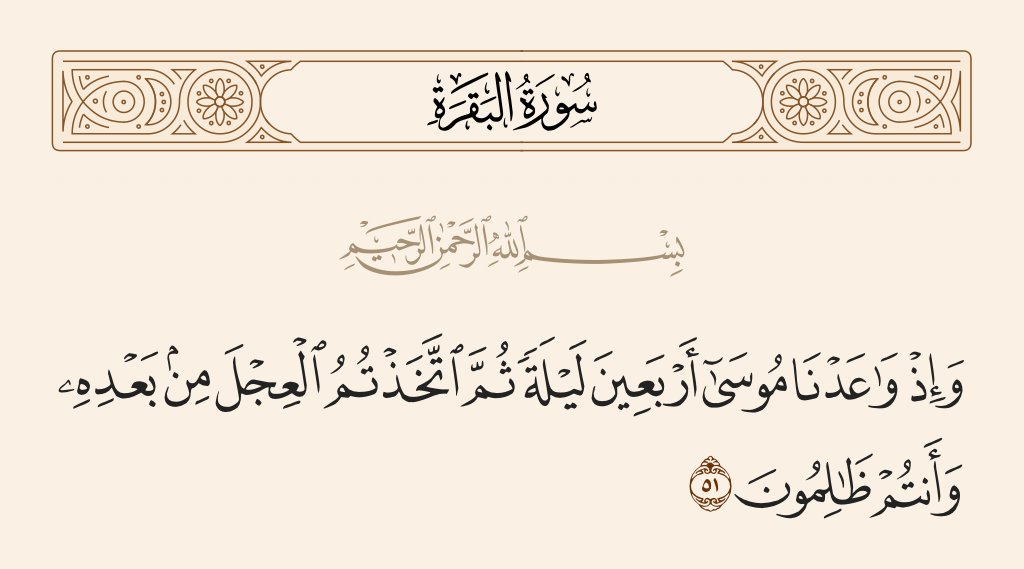 سُورَةُ البَقَرَةِ
بِسْمِ ٱللَّهِ ٱلرَّحْمَٰنِ ٱلرَّحِيمِ
وَإِذْ وَٰعَدْنَا مُوسَىٰٓ أَرْبَعِينَ لَيْلَةً ثُمَّ ٱتَّخَذْتُمُ ٱلْعِجْلَ مِنۢ بَعْدِهِۦ
وَأَنتُمْ ظَٰلِمُونَ ٥١